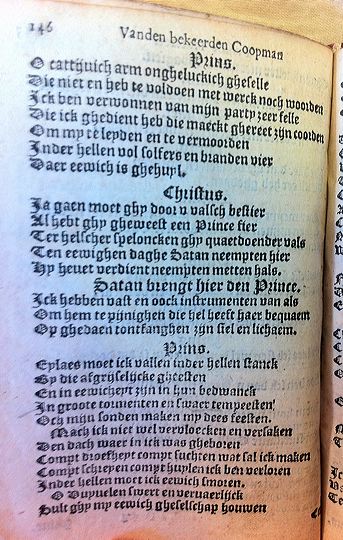 146
Vanden bekeerden Coopman
Prins.
O cattijvich arm ongheluckich gheselle
Die niet en heb te voldoen met werck noch woorden
Ick ben verwonnen van mijn party zeer felle
Die ick ghedient heb die maeckt ghereet zijn coorden
Om my te leyden en te vermoorden
Inder hellen vol solfers en branden vier
Daer eewich is ghehuyl.
Christus.
Ja gaen moet ghy door v valsch bestier
Al hebt ghy gheweest een Prince fier
Ter helscher speloncken ghy quaetdoender vals
Ten eewighen daghe Satan neempten hier
Hy heuet verdient neempten metten hals.
Satan brengt hier den Prince.
Ick hebben vast en oock instrumenten van als
Om hem te pijnighen die hel heeft haer bequaem
Op ghedaen tontfanghen zijn siel en lichaem.
Prins.
Eylaes moet ick vallen inder hellen stanck
By die afgrijselijcke gheesten
En in eewicheyt zijn in hun bedwanck
In groote tormenten en swaer tempeesten
Och mijn sonden maken my dees feesten.
Mach ick niet wel vervloecken en versaken
Den dach waer in ick was gheboren
Compt droefheyt compt suchten wat sal ick maken
Compt schreyen compt huylen ick ben verloren
Inder hellen moet ick eewich smoren.
O Duyuelen swert en veruaerlijck
Sult ghy my eewich gheselschap houwen